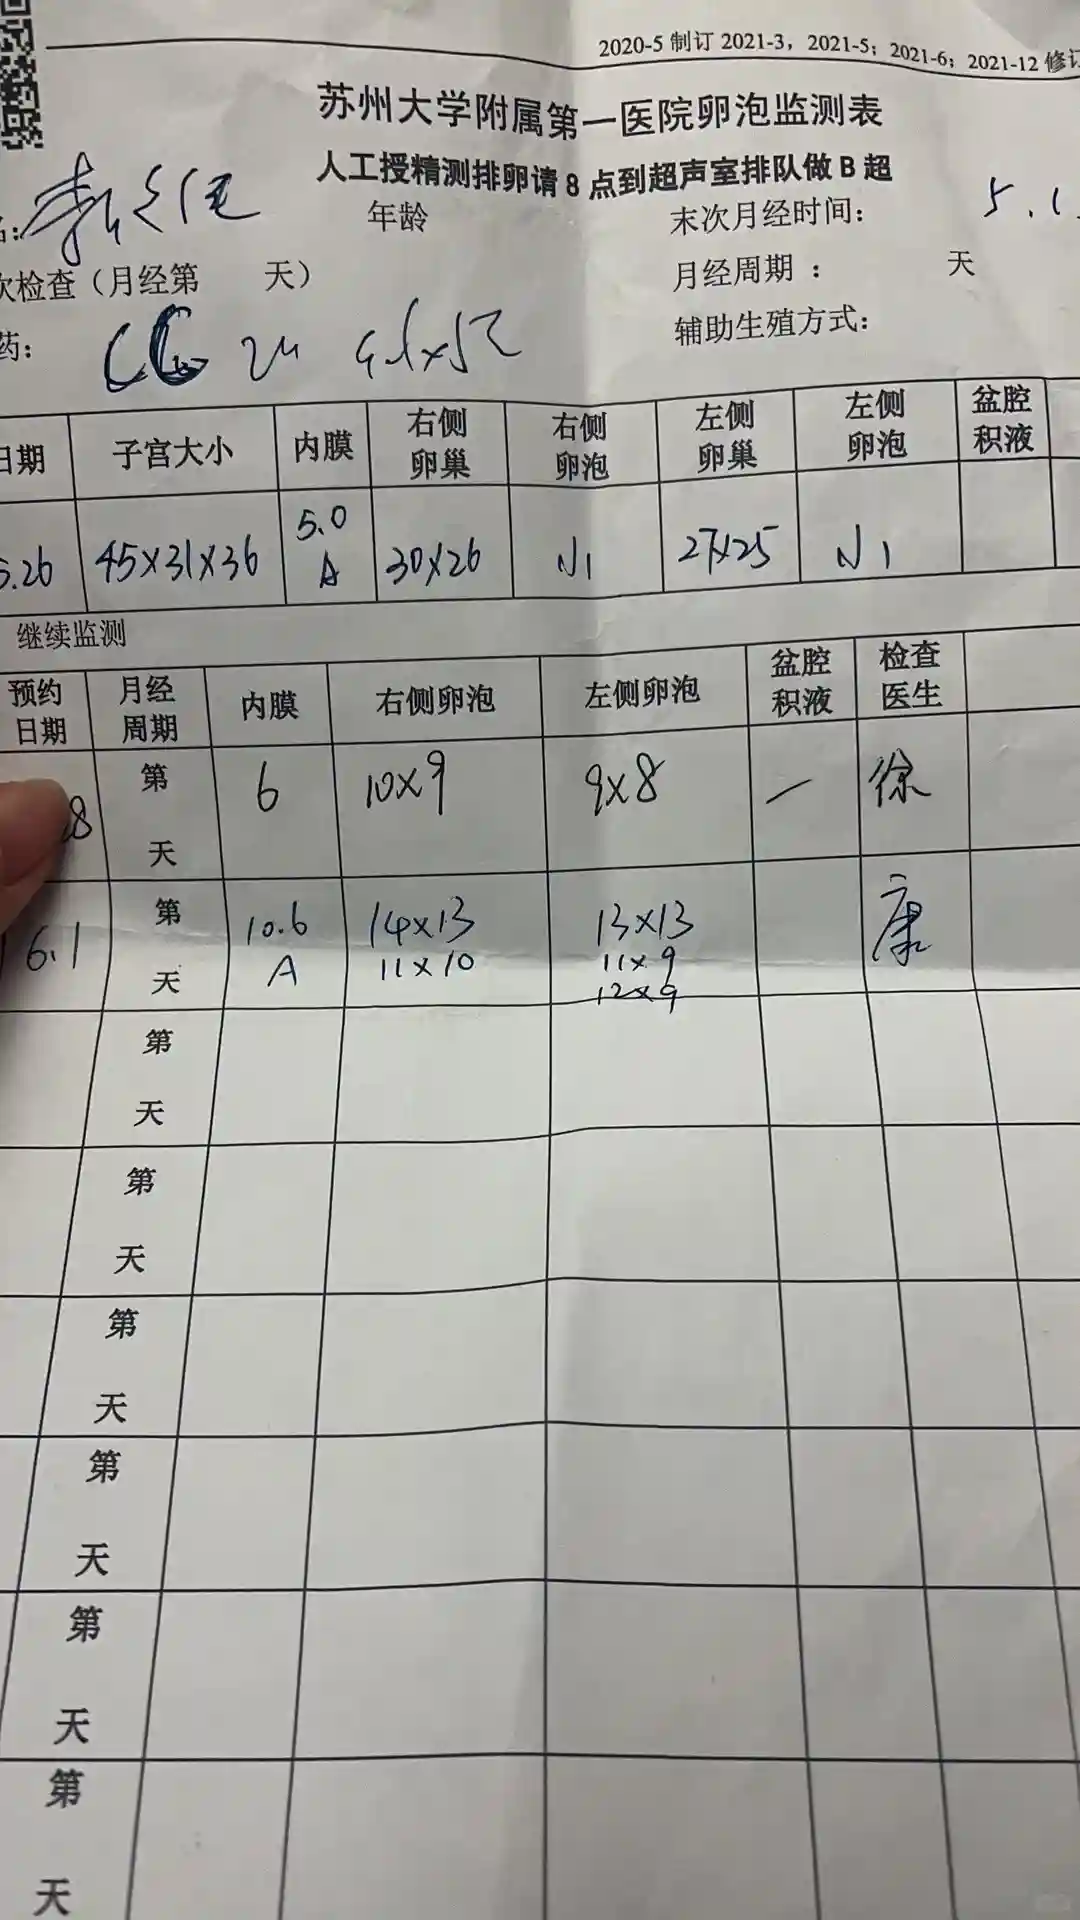 2020-5 制订 2021-3，2021-5；2021-6；2021-12 修订
苏州大学附属第一医院卵泡监测表
人工授精测排卵请 8 点到超声室排队做 B 超
年龄 末次月经时间：
次检查（月经第 天） 月经周期 ： 天
药： 辅助生殖方式：
日期 子宫大小 内膜 右侧卵巢 右侧卵泡 左侧卵巢 左侧卵泡 盆腔积液
5.26 45×31×36 5.0 A 30×26 N1 27×25 N1
继续监测
预约日期 月经周期 内膜 右侧卵泡 左侧卵泡 盆腔积液 检查医生
8 第 天 6 10×9 9×8 — 徐
6.1 第 天 10.6 A 14×13 11×10 13×13 11×9 12×9 康
第
天
第
天
第
天
第
天
第
天
第
天